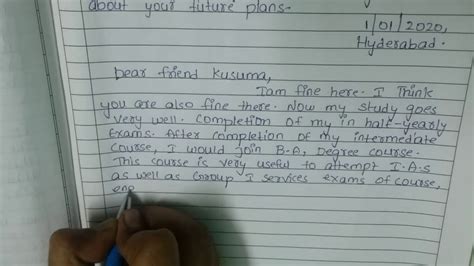 about your future plans-
1/01/2020,
Hyderabad.
Dear friend Kusuma,
Iam fine here. I Think
you are also fine there. Now my study goes
very well. Completion of my in half-yearly
Exams. After completion of my intermediate
Course, I would join B.A. Degree course.
This course is very useful to attempt I.A.S
as well as Group I services exams of course,
eng